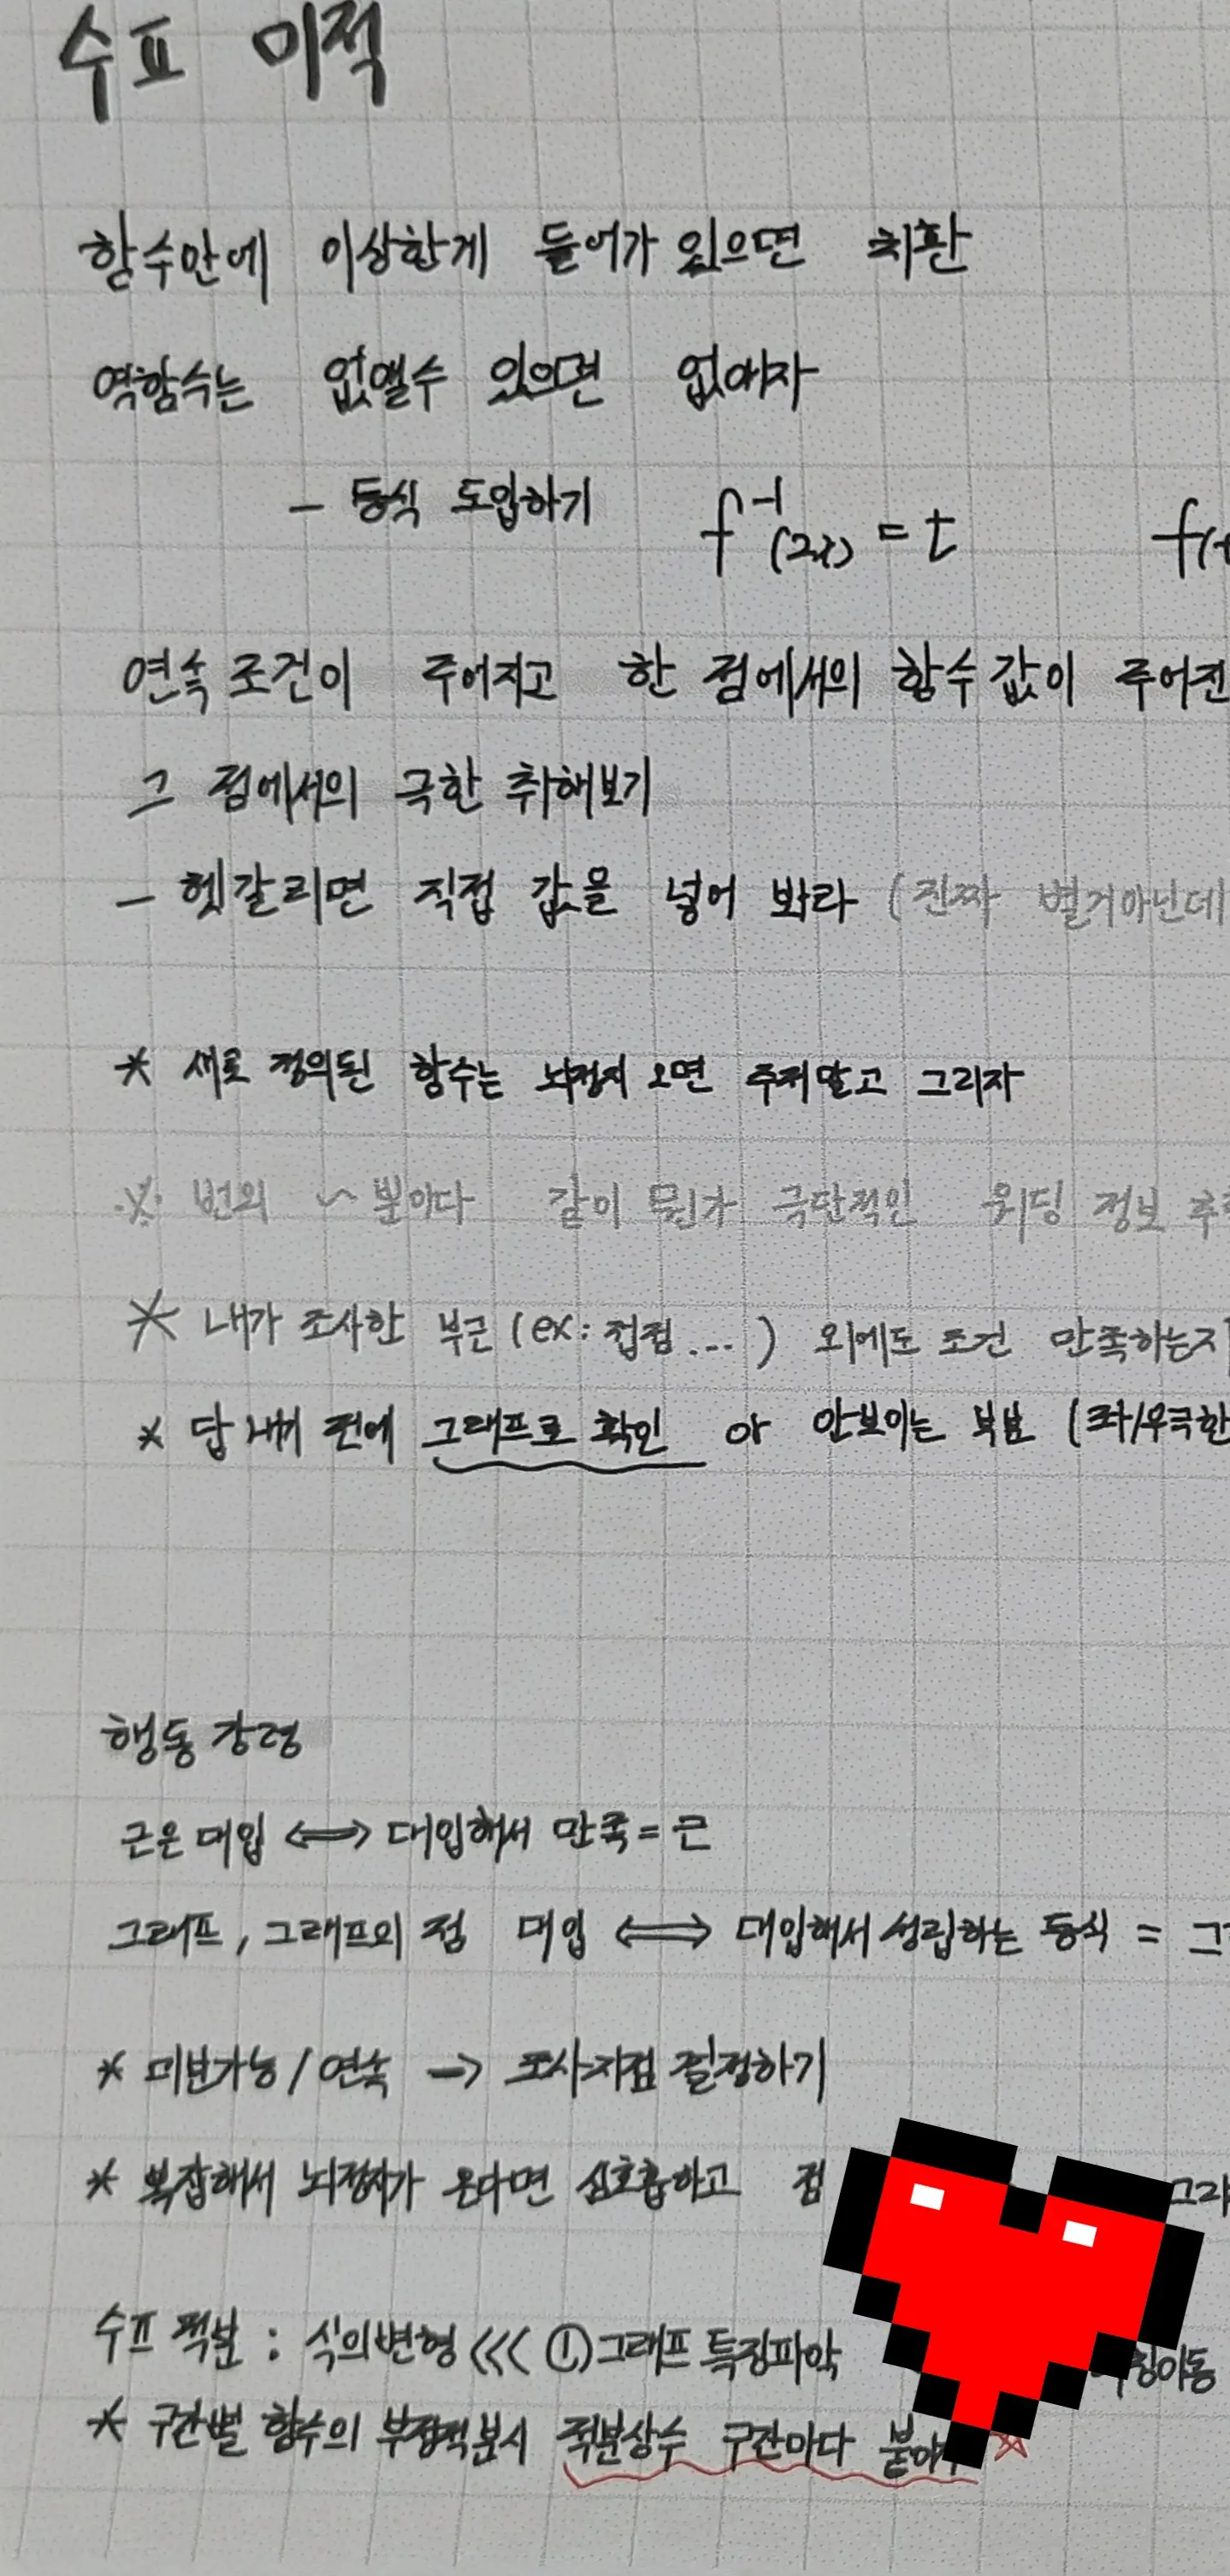 수표 미적
함수안에 이상한게 들어가 있으면 치환
역함수는 없앨수 있으면 없애자
– 등식 도입하기 f⁻¹(2x) = t f(t
연속 조건이 주어지고 한 점에서의 함수 값이 주어진
그 점에서의 극한 취해보기
– 헷갈리면 직접 값을 넣어 봐라 (진짜 별거아닌데
* 새로 정의된 함수는 뇌정지 오면 주저말고 그리자
※ 번외 ~ 뿐이다 같이 뭔가 극단적인 워딩 정보
* 내가 조사한 부근 (ex: 접점 ...) 외에도 조건 만족하는지
* 답 내기 전에 그래프로 확인 or 안보이는 부분 (좌/우극한
행동 강령
근은 대입 ⟺ 대입해서 만족 = 근
그래프, 그래프의 점 대입 ⟺ 대입해서 성립하는 등식 = 그
* 미분가능 / 연속 → 조사지점 결정하기
* 복잡해서 뇌정지가 온다면 심호흡하고 점
수프 적분 : 식의변형 <<< ① 그래프 특징파악 이동
* 구간별 함수의 부정적분시 적분상수 구간마다